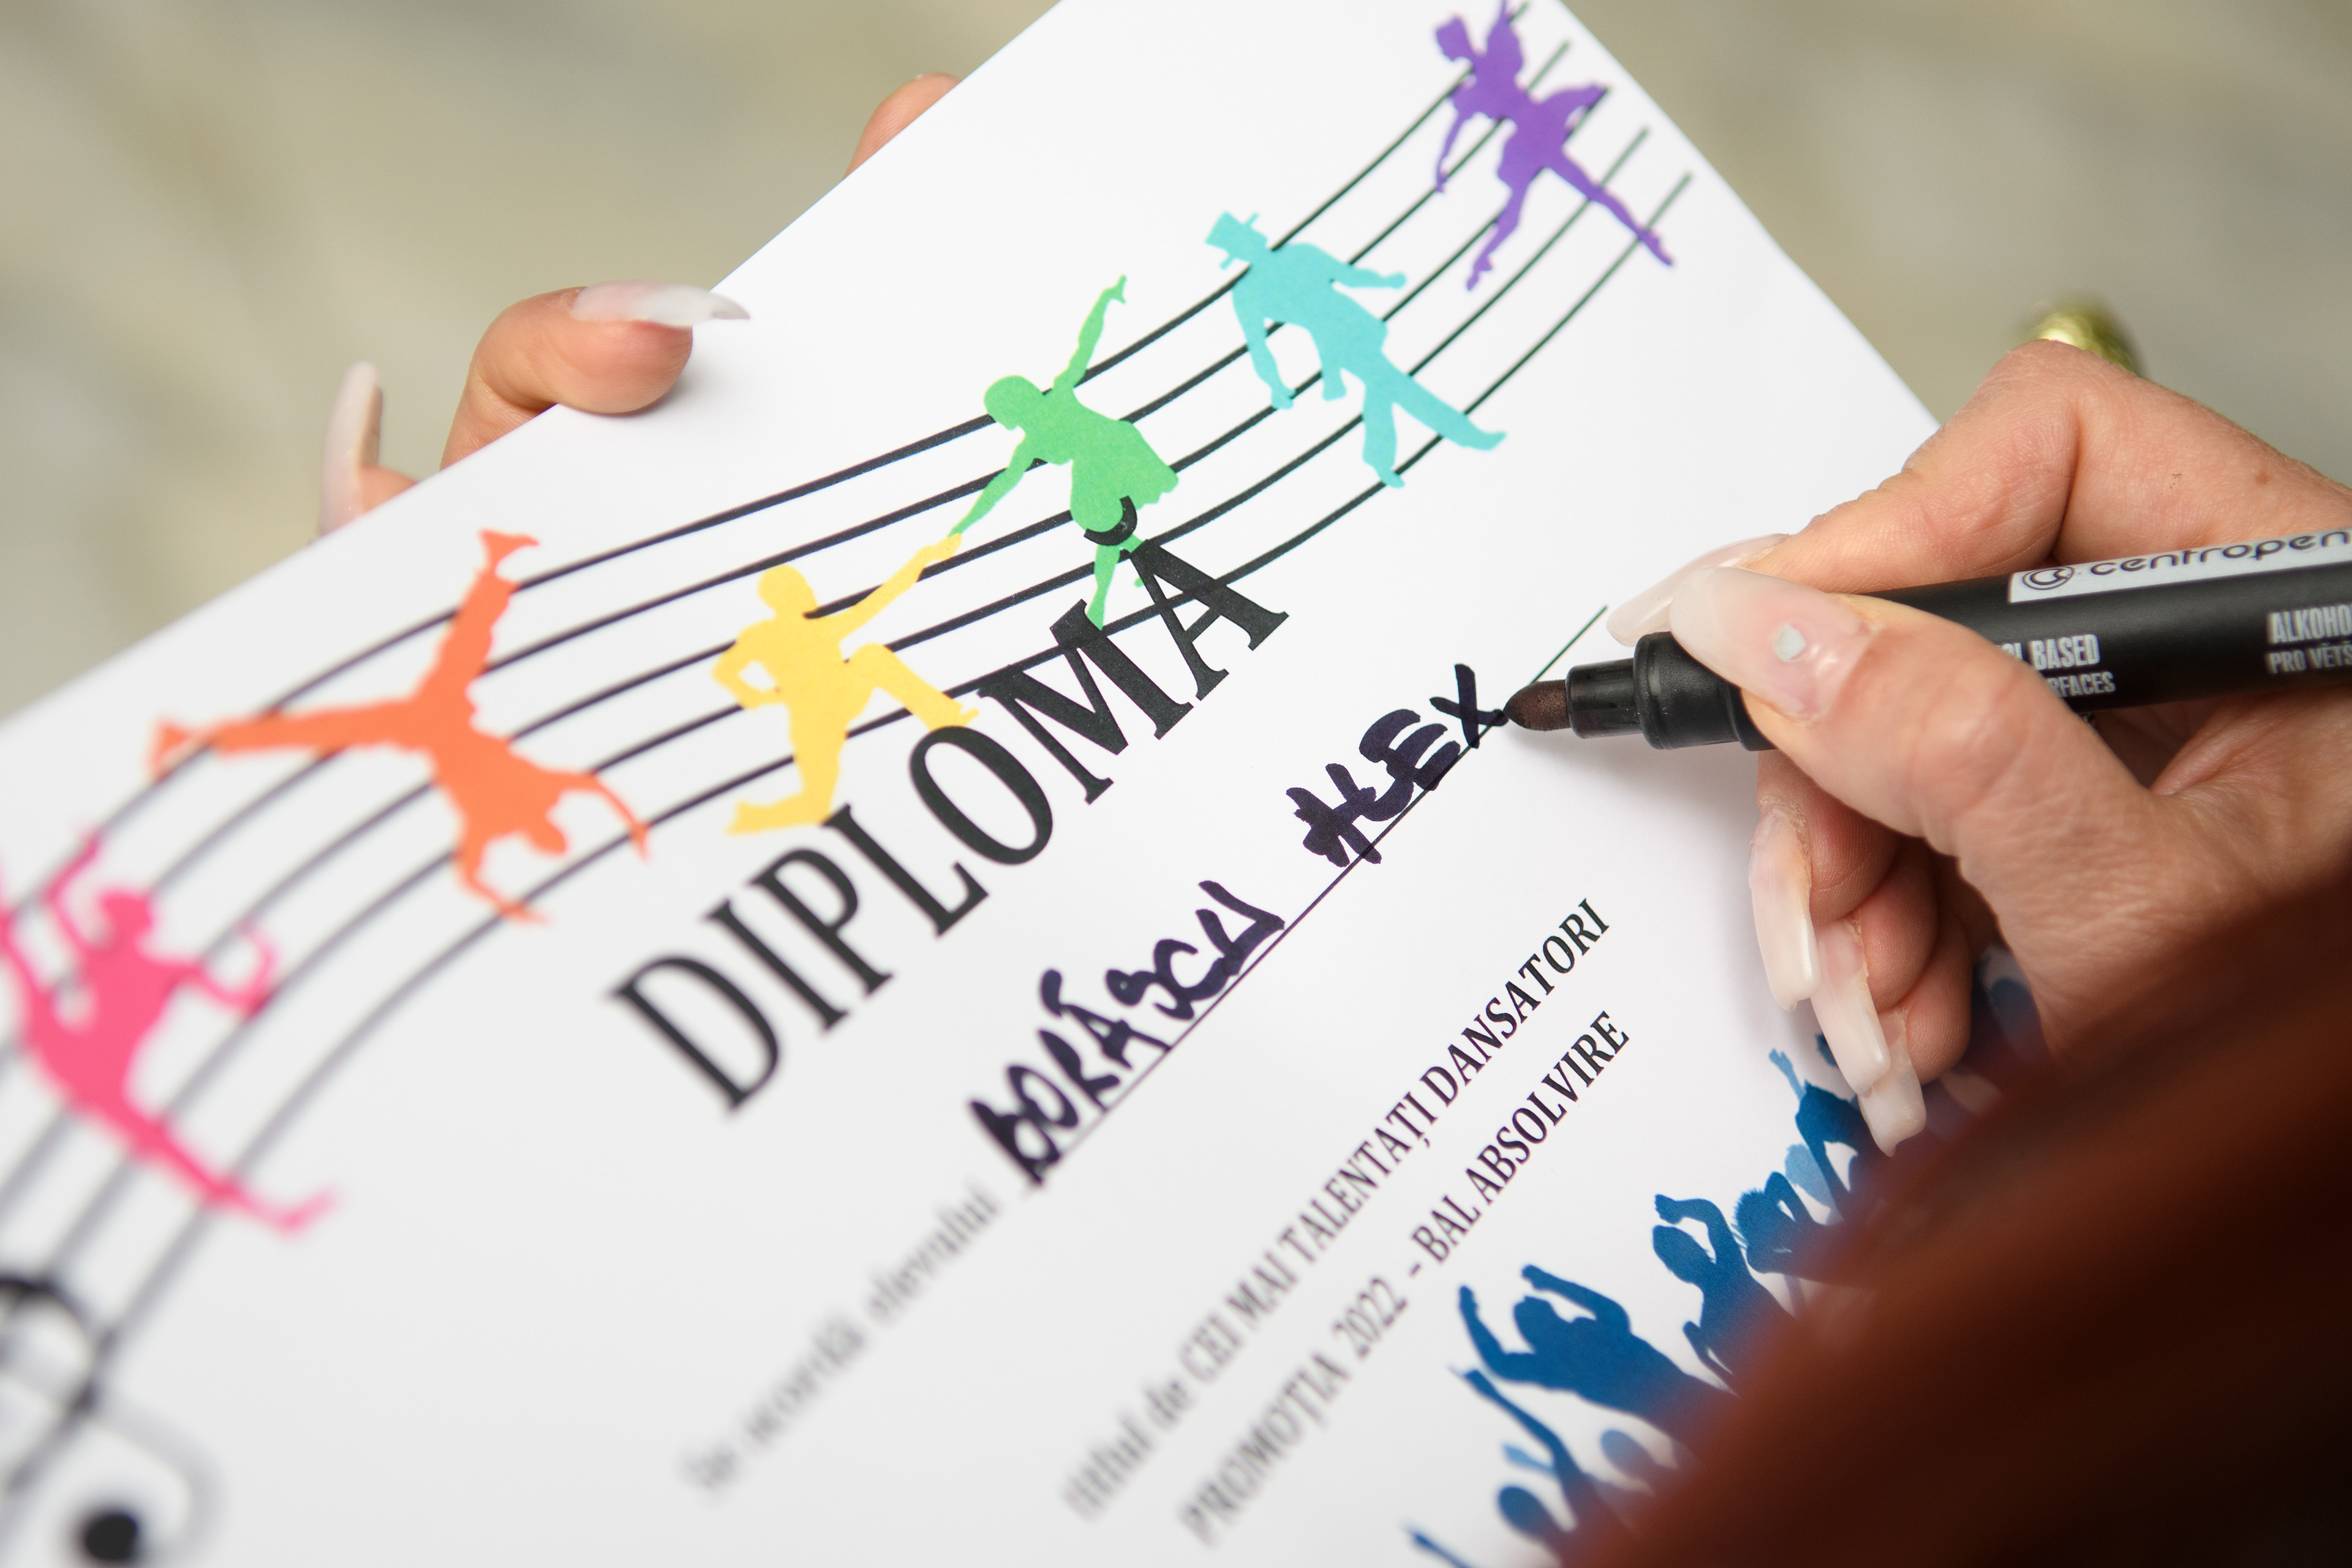 DIPLOMĂ
Se acordă elevului BORĂSCU ALEX
titlul de CEI MAI TALENTAȚI DANSATORI
PROMOȚIA 2022 - BAL ABSOLVIRE
centropen
OL BASED
RFACES
ALKOHO
PRO VĚTŠ